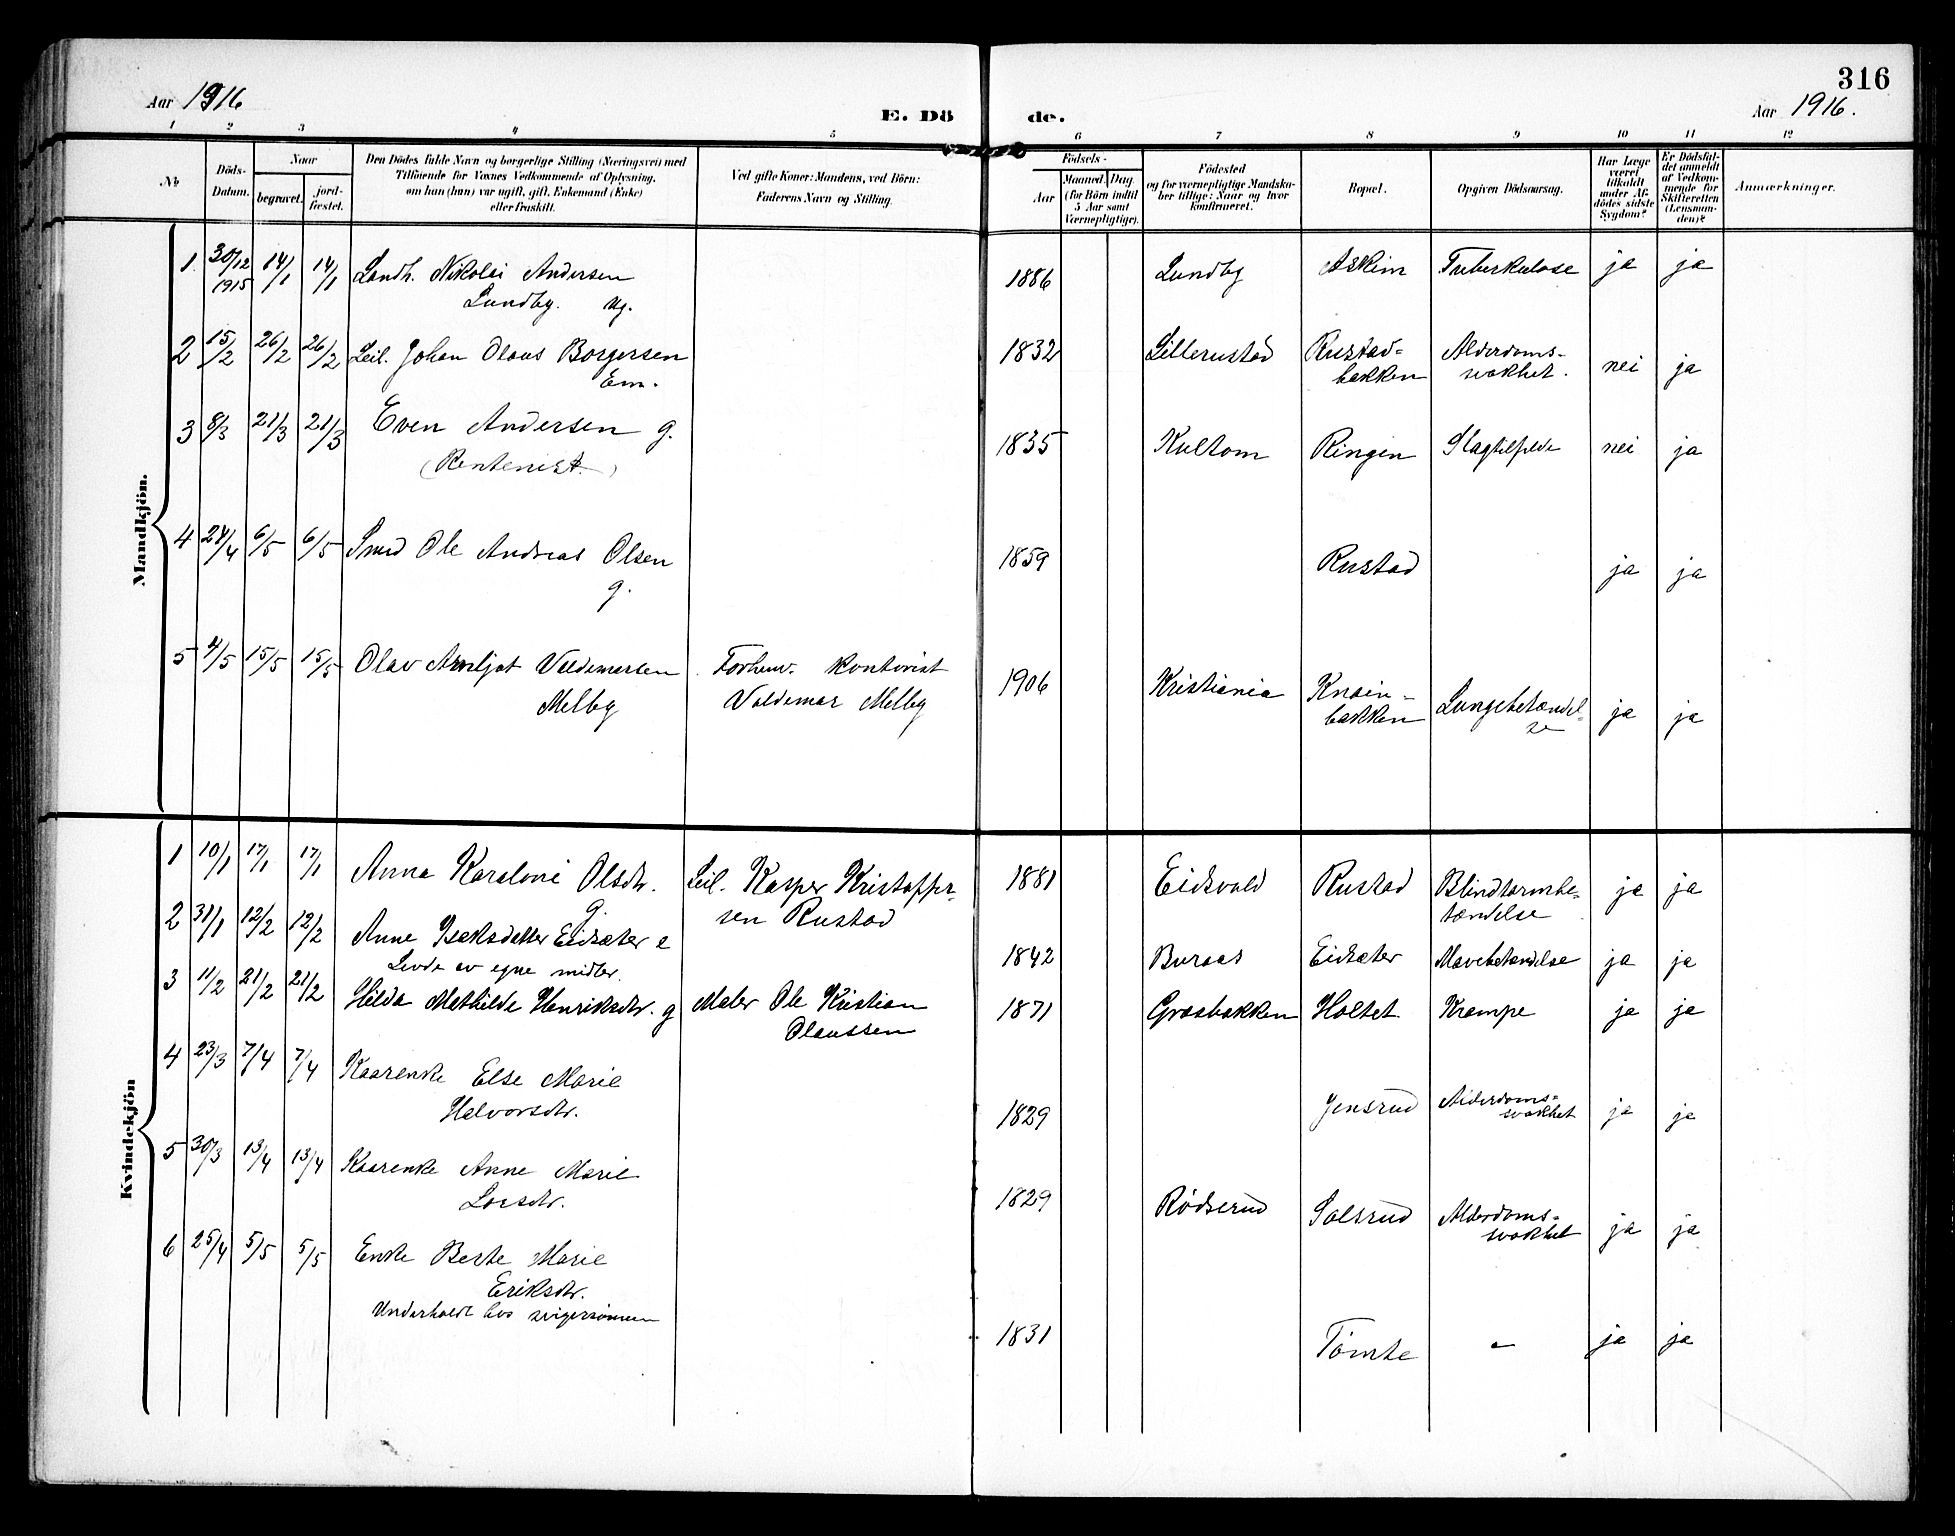 316
Aar 1916
E. Dö de.
Aar 1916.
1 2 3 4 5 6 7 8 9 10 11 12
No
Döds-Datum.
Naar
begravet.
jord-fæstet.
Den Dödes fulde Navn og borgerlige Stilling (Næringsvei) med
Tilföiende for Voxnes Vedkommende af Oplysning,
om han (hun) var ugift, gift, Enkemand (Enke)
eller fraskilt.
Ved gifte Koner: Mandens, ved Börn:
Faderens Navn og Stilling.
Födsels-
Aar
Maaned. Dag
(for Börn indtil
5 Aar samt
Værnepligtige).
Födested
og for værnepligtige Mandska-
ber tillige: Naar og hvor
konfirmeret.
Bopæl.
Opgiven Dödsaarsag.
Har Læge
været
tilkaldt
under Af-
dödes sidste
Sygdom?
Er Dödsfal-
det anmeldt
af Vedkom-
mende for
Skifteretten
(Lensman-
den)?
Anmærkninger.
Mandkjön.
1. 30/12 14/1 14/1 Landh. Nikolai Andersen 1886 Lundby Askim Tuberkulose ja ja
1915 Lundby. ug.
2 15/2 26/2 26/2 Leil. Johan Olaus Borgersen 1832 Lillerustad Rustad- Alderdoms- nei ja
Em. bakken svakhet.
3 8/3 21/3 21/3 Even Andersen g. 1835 Kultom Ringen Slagtilfelde nei ja
(Rentenist.)
4 24/4 6/5 6/5 Smed Ole Andreas Olsen 1859 Rustad ja ja
g.
5 4/5 15/5 15/5 Olav Arnljot Valdemarsen Forhenv. kontorist 1906 Kristiania Lungebetændel- ja ja
Melby Valdemar Melby bakken se
Kvindekjön
1 10/1 17/1 17/1 Anna Karoline Olsdtr. Leil. Kasper Kristoffer- 1881 Eidsvold Rustad Blindtarmbe- ja ja
g. sen Rustad tændelse
2 31/1 12/2 12/2 Anne Isaksdatter Eidsæter e 1842 Buraas Eidsæter Mavebetændelse ja ja
Levde av egne midler.
3 11/2 21/2 21/2 Hilda Mathilde Henriksdtr. g Maler Ole Kristian 1871 Græsbakken Holtet Krampe ja ja
Olaussen
4 23/3 7/4 7/4 Kaarenke Else Marie 1829 Jensrud Alderdoms- ja ja
Halvorsdtr. svakhet
5 30/3 13/4 13/4 Kaarenke Anne Marie 1829 Rødserud Solsrud Alderdoms- ja ja
Larsdtr. svakhet
6 25/4 5/5 5/5 Enke Berte Marie 1831 Tømte - ja ja
Eriksdtr.
Underholdt hos svigersønnen